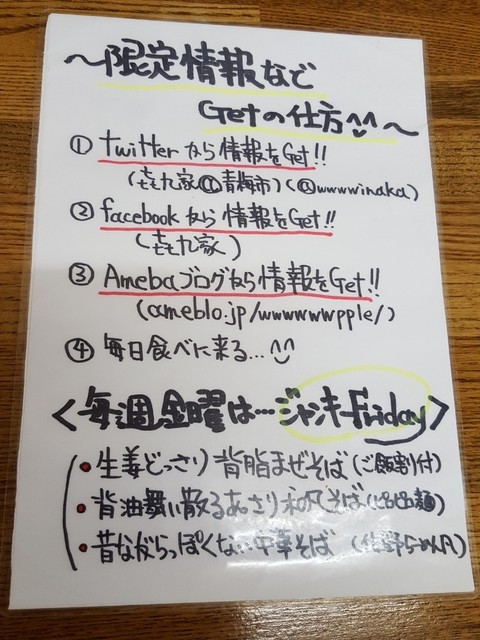 〜限定情報など
Getの仕方^^〜
① twitterから情報をGet!!
(㐂九家@青梅市)(@wwwwinaka)
② facebookから情報をGet!!
(㐂九家)
③ Amebaブログから情報をGet!!
(ameblo.jp/wwwwwwpple/)
④ 毎日食べに来る…^^
<毎週金曜は…ジャンキーFriday>
・生姜どっさり背脂まぜそば(ご飯割付)
・背油舞い散るあっさり和風そば
・昔ながらっぽくない中華そば